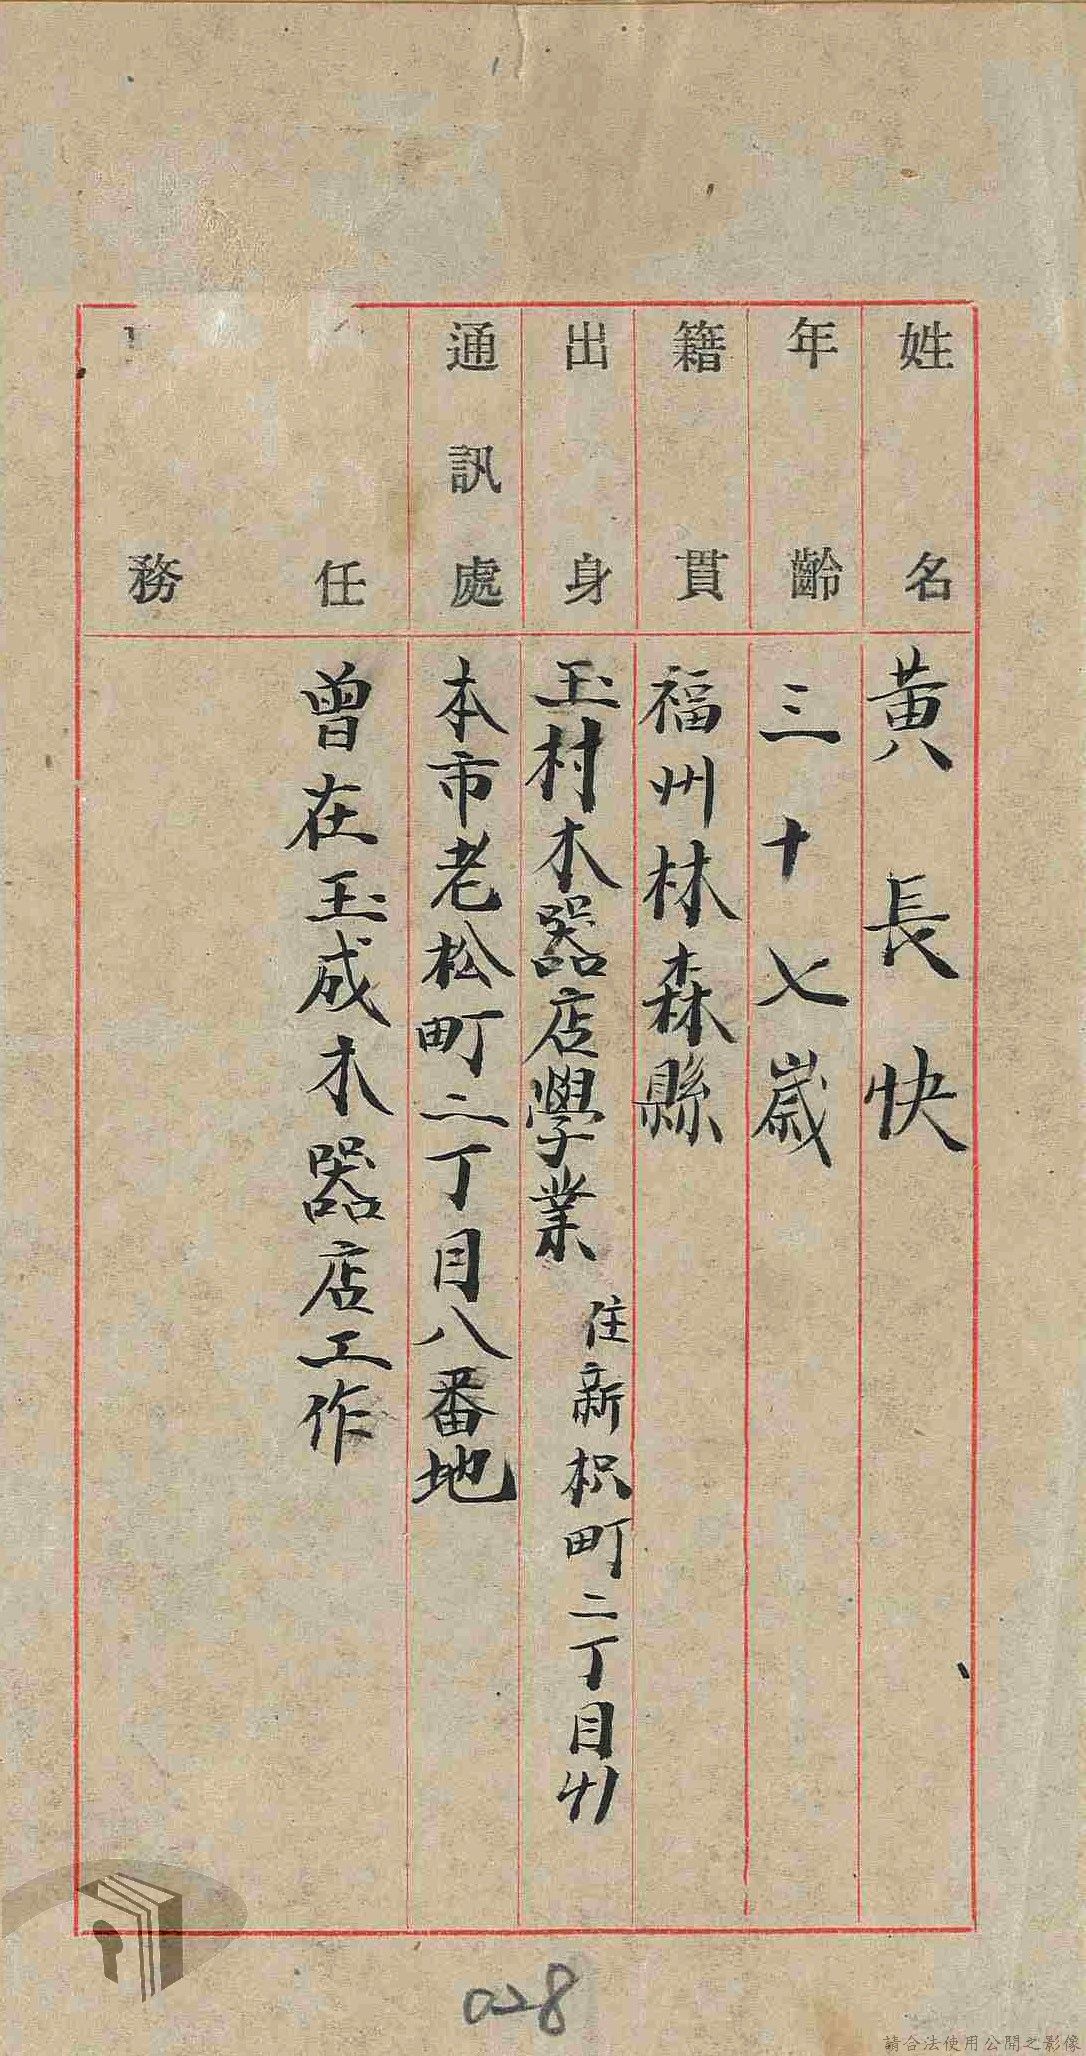 姓名
黃長快
年齡
三十七歲
籍貫
福州林森縣
出身
玉村木器店學業
住新枳町二丁目41
通訊處
本市老松町二丁目八番地
任
務
曾在玉成木器店工作
028
請合法使用公開之影像